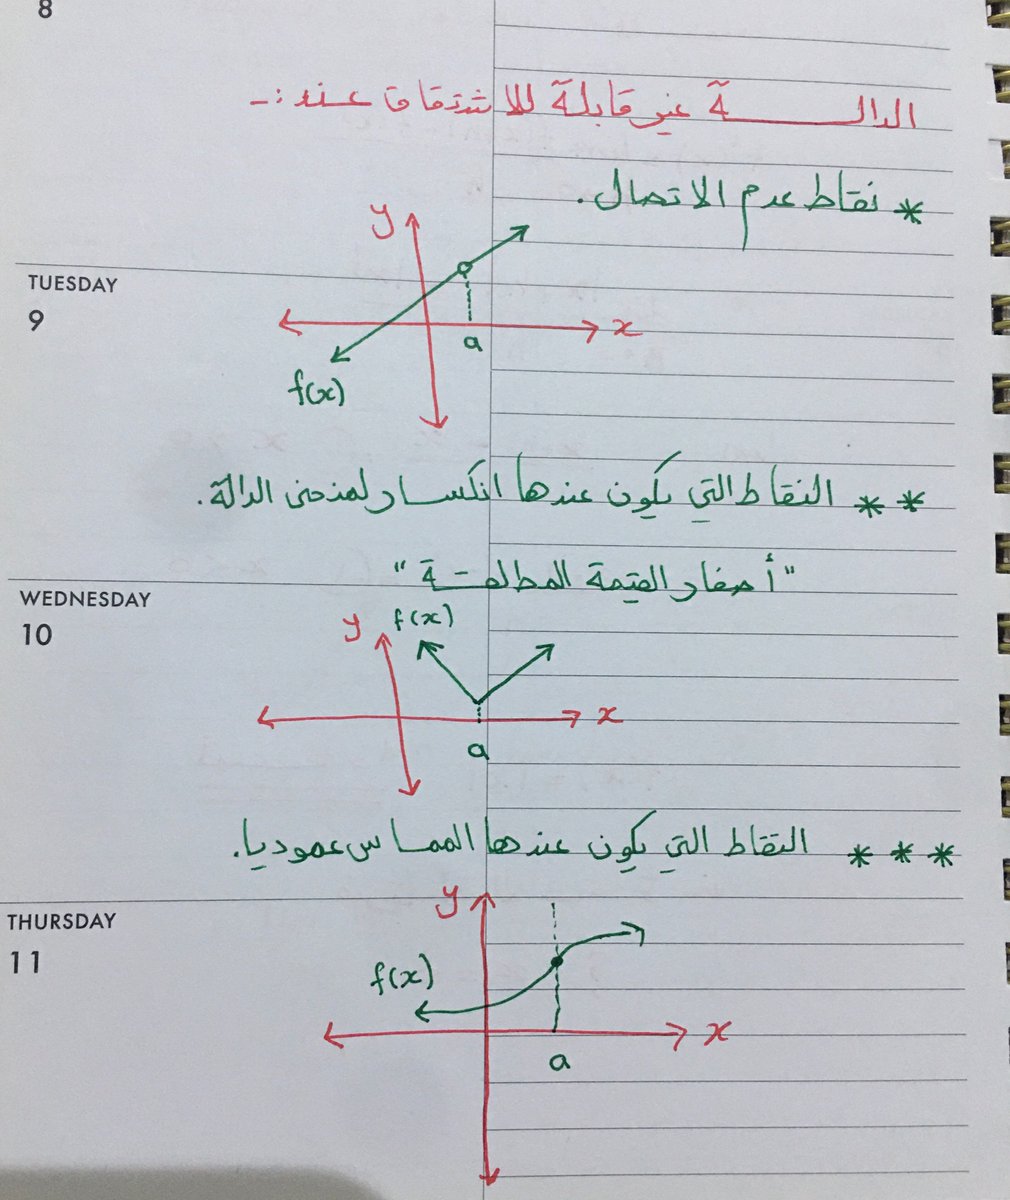 8
الدالــــة غير قابلة للاشتقاق عند :-
* نقاط عدم الاتصال.
y
TUESDAY
9
x
a
f(x)
** النقاط التي يكون عندها انكسار لمنحنى الدالة.
"أصفار القيمة المطلقـة"
WEDNESDAY
10
y f(x)
x
a
*** النقاط التي يكون عندها المماس عموديا.
y
THURSDAY
11
f(x)
x
a